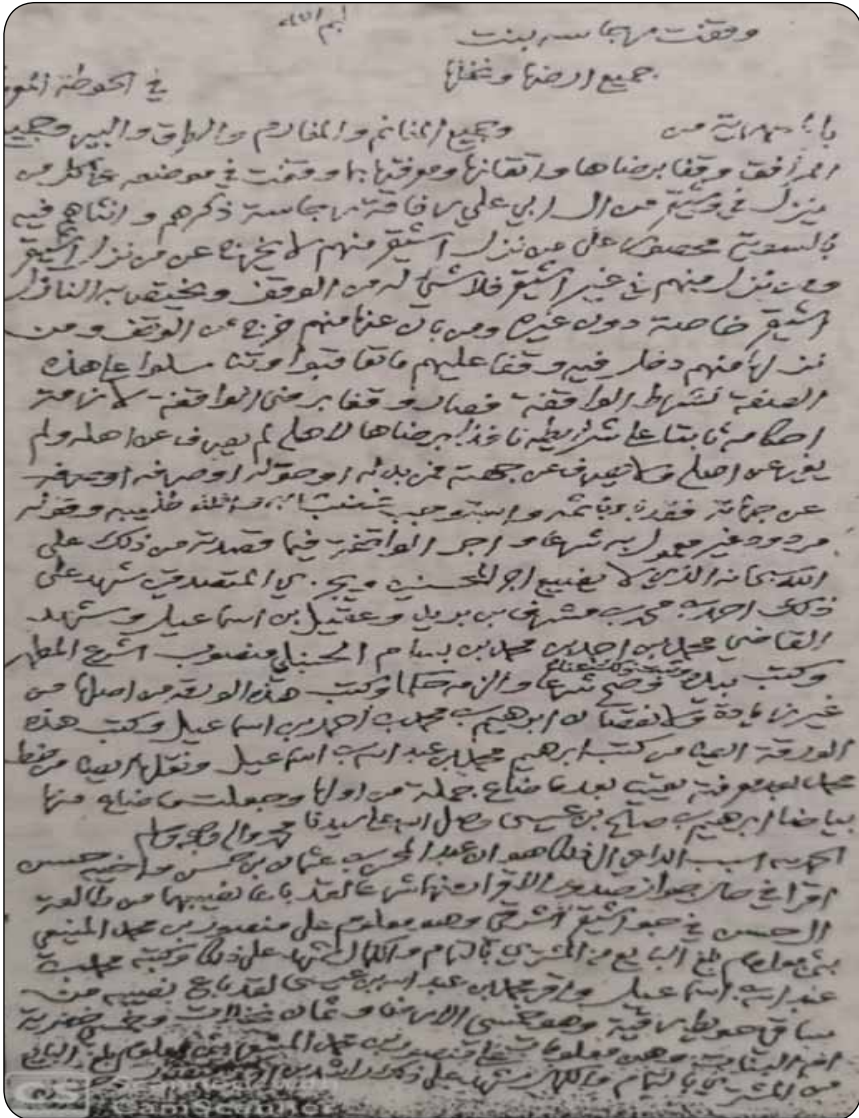 بسم الله
وقفت مهجاسه بنت
جميع ارضها ونخلها في الحوطة
وجميع المغانم والمغارم والطرق والبير وجميع
المرافق وقفا برضاها واتقانها ومعرفتها بما وقفت في موضعه على كل من
ينزل في وشيقر من ال ابي علي جاسة ذكرهم وانثاهم فيه
بالسوية على من نزل اشيقر منهم لا يخرج عن من نزل اشيقر
ومن نزل منهم في غير اشيقر فلا شيء له من الوقف ويختص به النازل
اشيقر خاصة دون غيره ومن بان عنها منهم خرج من الوقف ومن
نزلها منهم دخل فيه وقفا عليهم ما تعاقبوا وتناسلوا على هذه
الصفة لشرط الواقفة فصار وقفا برضى الواقفة لازمة
احكامه ثابتا على شرايطه نافذا برضاها لاهله لم يصرف عن اهله ولم
يغير عن اصله ولا يصرف عن جهته فمن بدله او حوله او صرفه
عن جهاته فقد باء باثمه واستوجب وقوله
مردود غير معمول به شرعا واجر الواقفة فيما قصدته من ذلك على
الله سبحانه الذي لا يضيع اجر المحسنين ويجزي المتصدقين شهد على
ذلك احمد بن محمد بن مشرف بن بريد وعقيل بن اسماعيل وشهد
القاضي محمد بن احمد بن محمد بن بسام الحنبلي منصوب الشرع المطهر
وكتب بيده وصح شرعا والزمه حكما وكتب هذه الورقة من اصلها من
غير زيادة ولا نقصان ابرهيم بن محمد بن احمد بن اسماعيل وكتب هذه
الورقة ايضا من كتب ابرهيم محمد بن عبد الله بن اسماعيل ونقلها ايضا من خط
محمد بعد معرفته يقينا بعد ما ضاع جملة من اولها وجعلت ما ضاع منها
بياضا ابرهيم بن صالح بن عيسى وصلى الله على سيدنا محمد واله وصحبه وسلم
الحمد لله السبب الداعي الى ذلك هو ان عبد المحسن بن عثمان بن حسن واخيه حسن
اقرا في حال جواز صدور الاقرار منهما شرعا لقد باعا نصيبهما من
الحسن في جو اشيقر الشرقي وهو معلوم على منصور بن محمد المنيعي
بثمن معلوم بلغ البايع من المشتري بالتمام والكمال شهد على ذلك وكتبه محمد بن
عبد الله بن اسماعيل واقر محمد بن عبد الله بن عيسى لقد باع نصيبه من
ساقي حويط رقية وهو خمسي الارض وثمان نخلات وخمس خضرية
وهن معلومات على منصور بن محمد بثمن معلوم بلغ البائع
من المشتري بالتمام والكمال شهد على ذلك راشد بن
CS Scanned with
CamScanner